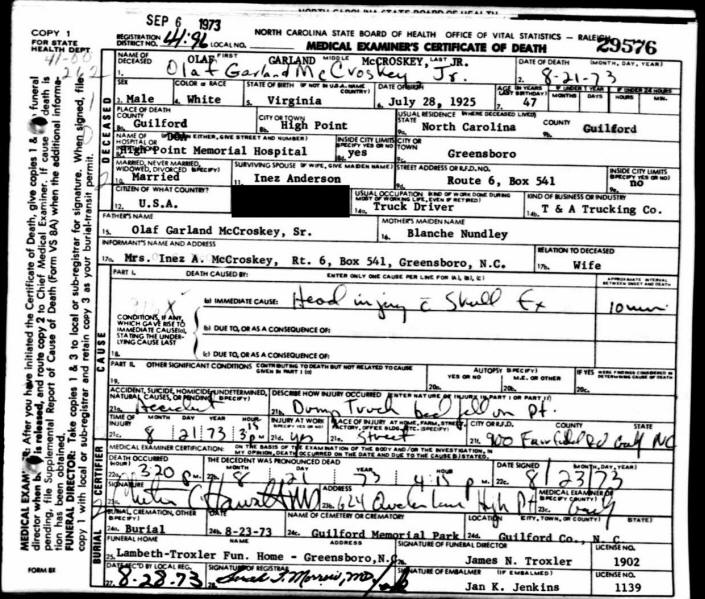 NORTH CAROLINA STATE BOARD OF HEALTH
SEP 6 1973
COPY 1
FOR STATE
HEALTH DEPT.
REGISTRATION DISTRICT NO. 41-96 LOCAL NO.
NORTH CAROLINA STATE BOARD OF HEALTH OFFICE OF VITAL STATISTICS - RALEIGH
MEDICAL EXAMINER'S CERTIFICATE OF DEATH
29576
NAME OF DECEASED OLAF GARLAND MIDDLE McCROSKEY, LAST JR. DATE OF DEATH (MONTH, DAY, YEAR)
1. Olaf Garland McCroskey Jr. 2. 8-21-73
SEX COLOR OR RACE STATE OF BIRTH (IF NOT IN U.S.A. NAME COUNTRY) DATE OF BIRTH AGE (IN YEARS LAST BIRTHDAY) IF UNDER 1 YEAR MONTHS DAYS IF UNDER 24 HOURS HOURS MIN.
3. Male 4. White 5. Virginia 6. July 28, 1925 7. 47
PLACE OF DEATH COUNTY CITY OR TOWN USUAL RESIDENCE (WHERE DECEASED LIVED) STATE COUNTY
Guilford High Point North Carolina Guilford
NAME OF HOSPITAL OR (IF NEITHER, GIVE STREET AND NUMBER) INSIDE CITY LIMITS (SPECIFY YES OR NO) CITY OR TOWN
High Point Memorial Hospital yes Greensboro
MARRIED, NEVER MARRIED, WIDOWED, DIVORCED (SPECIFY) SURVIVING SPOUSE (IF WIFE, GIVE MAIDEN NAME) STREET ADDRESS OR R.F.D. NO. INSIDE CITY LIMITS (SPECIFY YES OR NO)
10. Married 11. Inez Anderson Route 6, Box 541 no
CITIZEN OF WHAT COUNTRY? USUAL OCCUPATION (KIND OF WORK DONE DURING MOST OF WORKING LIFE, EVEN IF RETIRED) KIND OF BUSINESS OR INDUSTRY
12. U.S.A. 14a. Truck Driver 14b. T & A Trucking Co.
FATHER'S NAME MOTHER'S MAIDEN NAME
15. Olaf Garland McCroskey, Sr. 16. Blanche Nundley
INFORMANT'S NAME AND ADDRESS RELATION TO DECEASED
17a. Mrs. Inez A. McCroskey, Rt. 6, Box 541, Greensboro, N.C. 17b. Wife
PART I. DEATH CAUSED BY: ENTER ONLY ONE CAUSE PER LINE FOR (A), (B), (C) APPROXIMATE INTERVAL BETWEEN ONSET AND DEATH
(a) IMMEDIATE CAUSE: Head injury c̄ Skull Fx 10 min
CONDITIONS, IF ANY, WHICH GAVE RISE TO IMMEDIATE CAUSE(a), STATING THE UNDERLYING CAUSE LAST
(b) DUE TO, OR AS A CONSEQUENCE OF:
18. (c) DUE TO, OR AS A CONSEQUENCE OF:
PART II. OTHER SIGNIFICANT CONDITIONS CONTRIBUTING TO DEATH BUT NOT RELATED TO CAUSE GIVEN IN PART I (a) AUTOPSY (SPECIFY) YES OR NO M.E. OR OTHER IF YES WERE FINDINGS CONSIDERED IN DETERMINING CAUSE OF DEATH
19. 20a. 20b. 20c.
ACCIDENT, SUICIDE, HOMICIDE, UNDETERMINED, NATURAL CAUSES, OR PENDING (SPECIFY) DESCRIBE HOW INJURY OCCURRED (ENTER NATURE OF INJURY IN PART I OR PART II)
21a. Accident 21b. Dump Truck bed fell on Pt.
TIME OF INJURY MONTH DAY YEAR HOUR INJURY AT WORK PLACE OF INJURY AT HOME, FARM, STREET, FACTORY, OFFICE BLDG., ETC. (SPECIFY) CITY OR R.F.D. COUNTY STATE
21c. 8 21 73 3 15 P M 21d. yes Street 900 Fairfield Rd NC
MEDICAL CERTIFICATION: ON THE BASIS OF THE EXAMINATION OF THE BODY AND/OR THE INVESTIGATION, IN MY OPINION, DEATH OCCURRED ON THE DATE AND DUE TO THE CAUSE(S) STATED.
DEATH OCCURRED (HOUR) THE DECEDENT WAS PRONOUNCED DEAD DATE SIGNED (MONTH, DAY, YEAR)
22a. 3 20 P M. 8 21 73 4 15 P M 8/23/73
SIGNATURE ADDRESS MEDICAL EXAMINER OF (SPECIFY COUNTY)
MD 624 High Pt
BURIAL, CREMATION, OTHER (SPECIFY) DATE NAME OF CEMETERY OR CREMATORY LOCATION (CITY, TOWN, OR COUNTY) (STATE)
24a. Burial 24b. 8-23-73 24c. Guilford Memorial Park 24d. Guilford Co., N. C.
FUNERAL HOME ADDRESS SIGNATURE OF FUNERAL DIRECTOR LICENSE NO.
25. Lambeth-Troxler Fun. Home - Greensboro, N.C. James N. Troxler 1902
DATE REC'D BY LOCAL REG. SIGNATURE OF REGISTRAR SIGNATURE OF EMBALMER (IF EMBALMED) LICENSE NO.
27. 8-28-73 Jan K. Jenkins 1139
FORM 8X
DECEASED
CAUSE
CERTIFIER
BURIAL
MEDICAL EXAMINER: After you have initiated the Certificate of Death, give copies 1 & funeral
director when is released, and route copy 2 to Chief Medical Examiner. If cause death is
pending, file Supplemental Report of Cause of Death (Form VS 8A) when the additional informa-
tion has been obtained.
FUNERAL DIRECTOR: Take copies 1 & 3 to local or sub-registrar for signature. When signed, file
copy 1 with local or sub-registrar and retain copy 3 as your burial-transit permit.